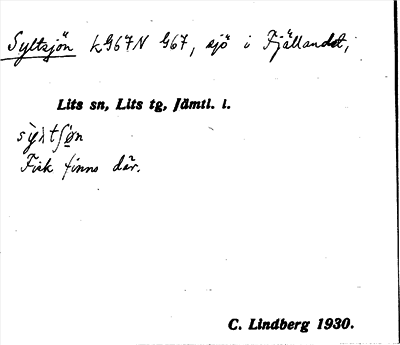 Syltsjön kG67N G67, sjö i Fjällandet,
Lits sn, Lits tg, Jämtl. l.
Fisk finns där.
C. Lindberg 1930.